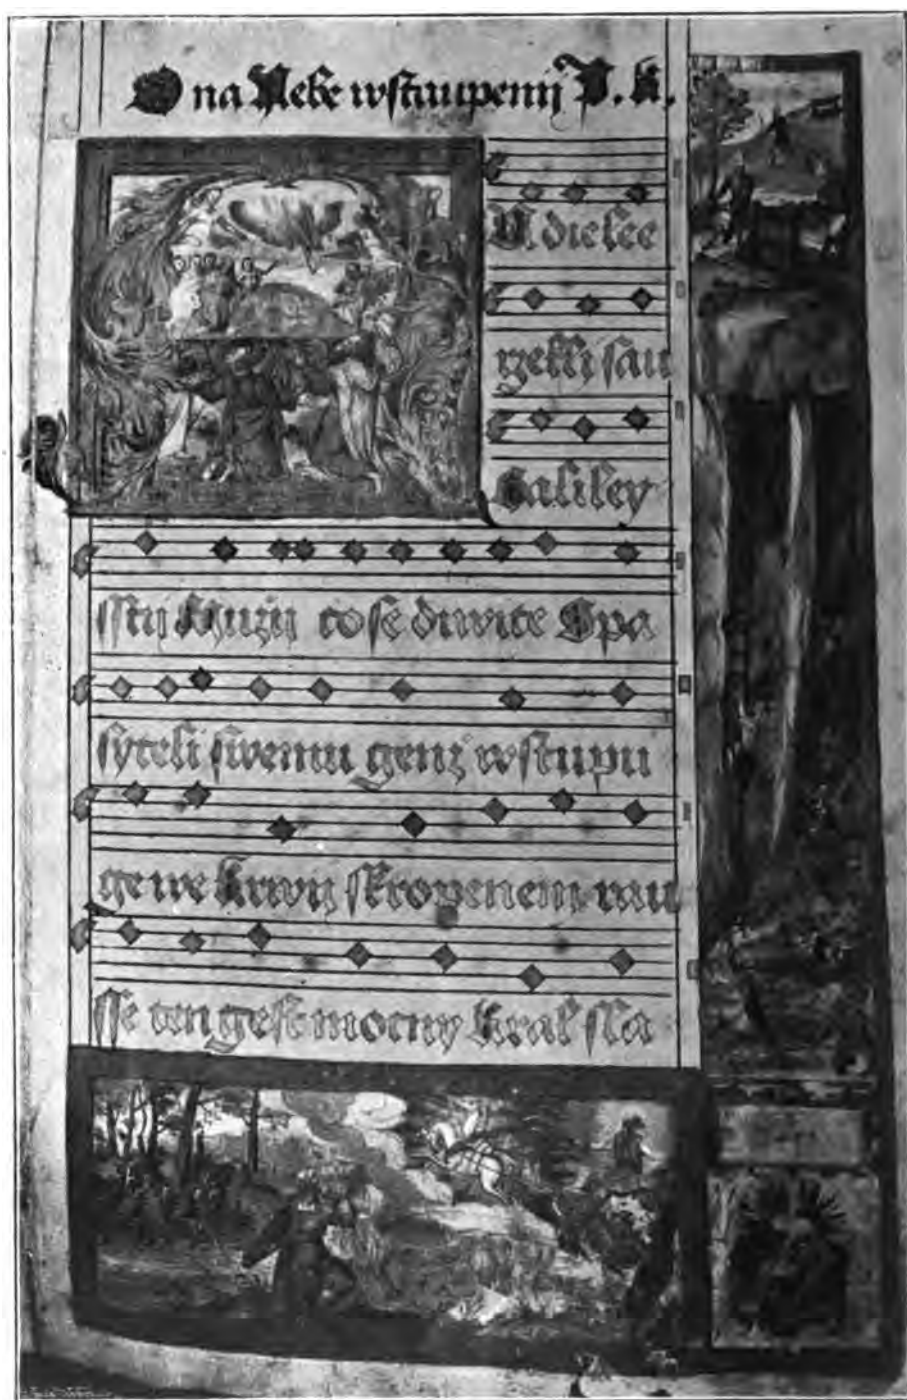 O na Nebe wstaupenij P. K.
Galiley
sstij Muzij co se diwite Spa
syteli swemu genz wstupu
ge we Krwij skropenem rau
sse ten gest mocny Kral sla